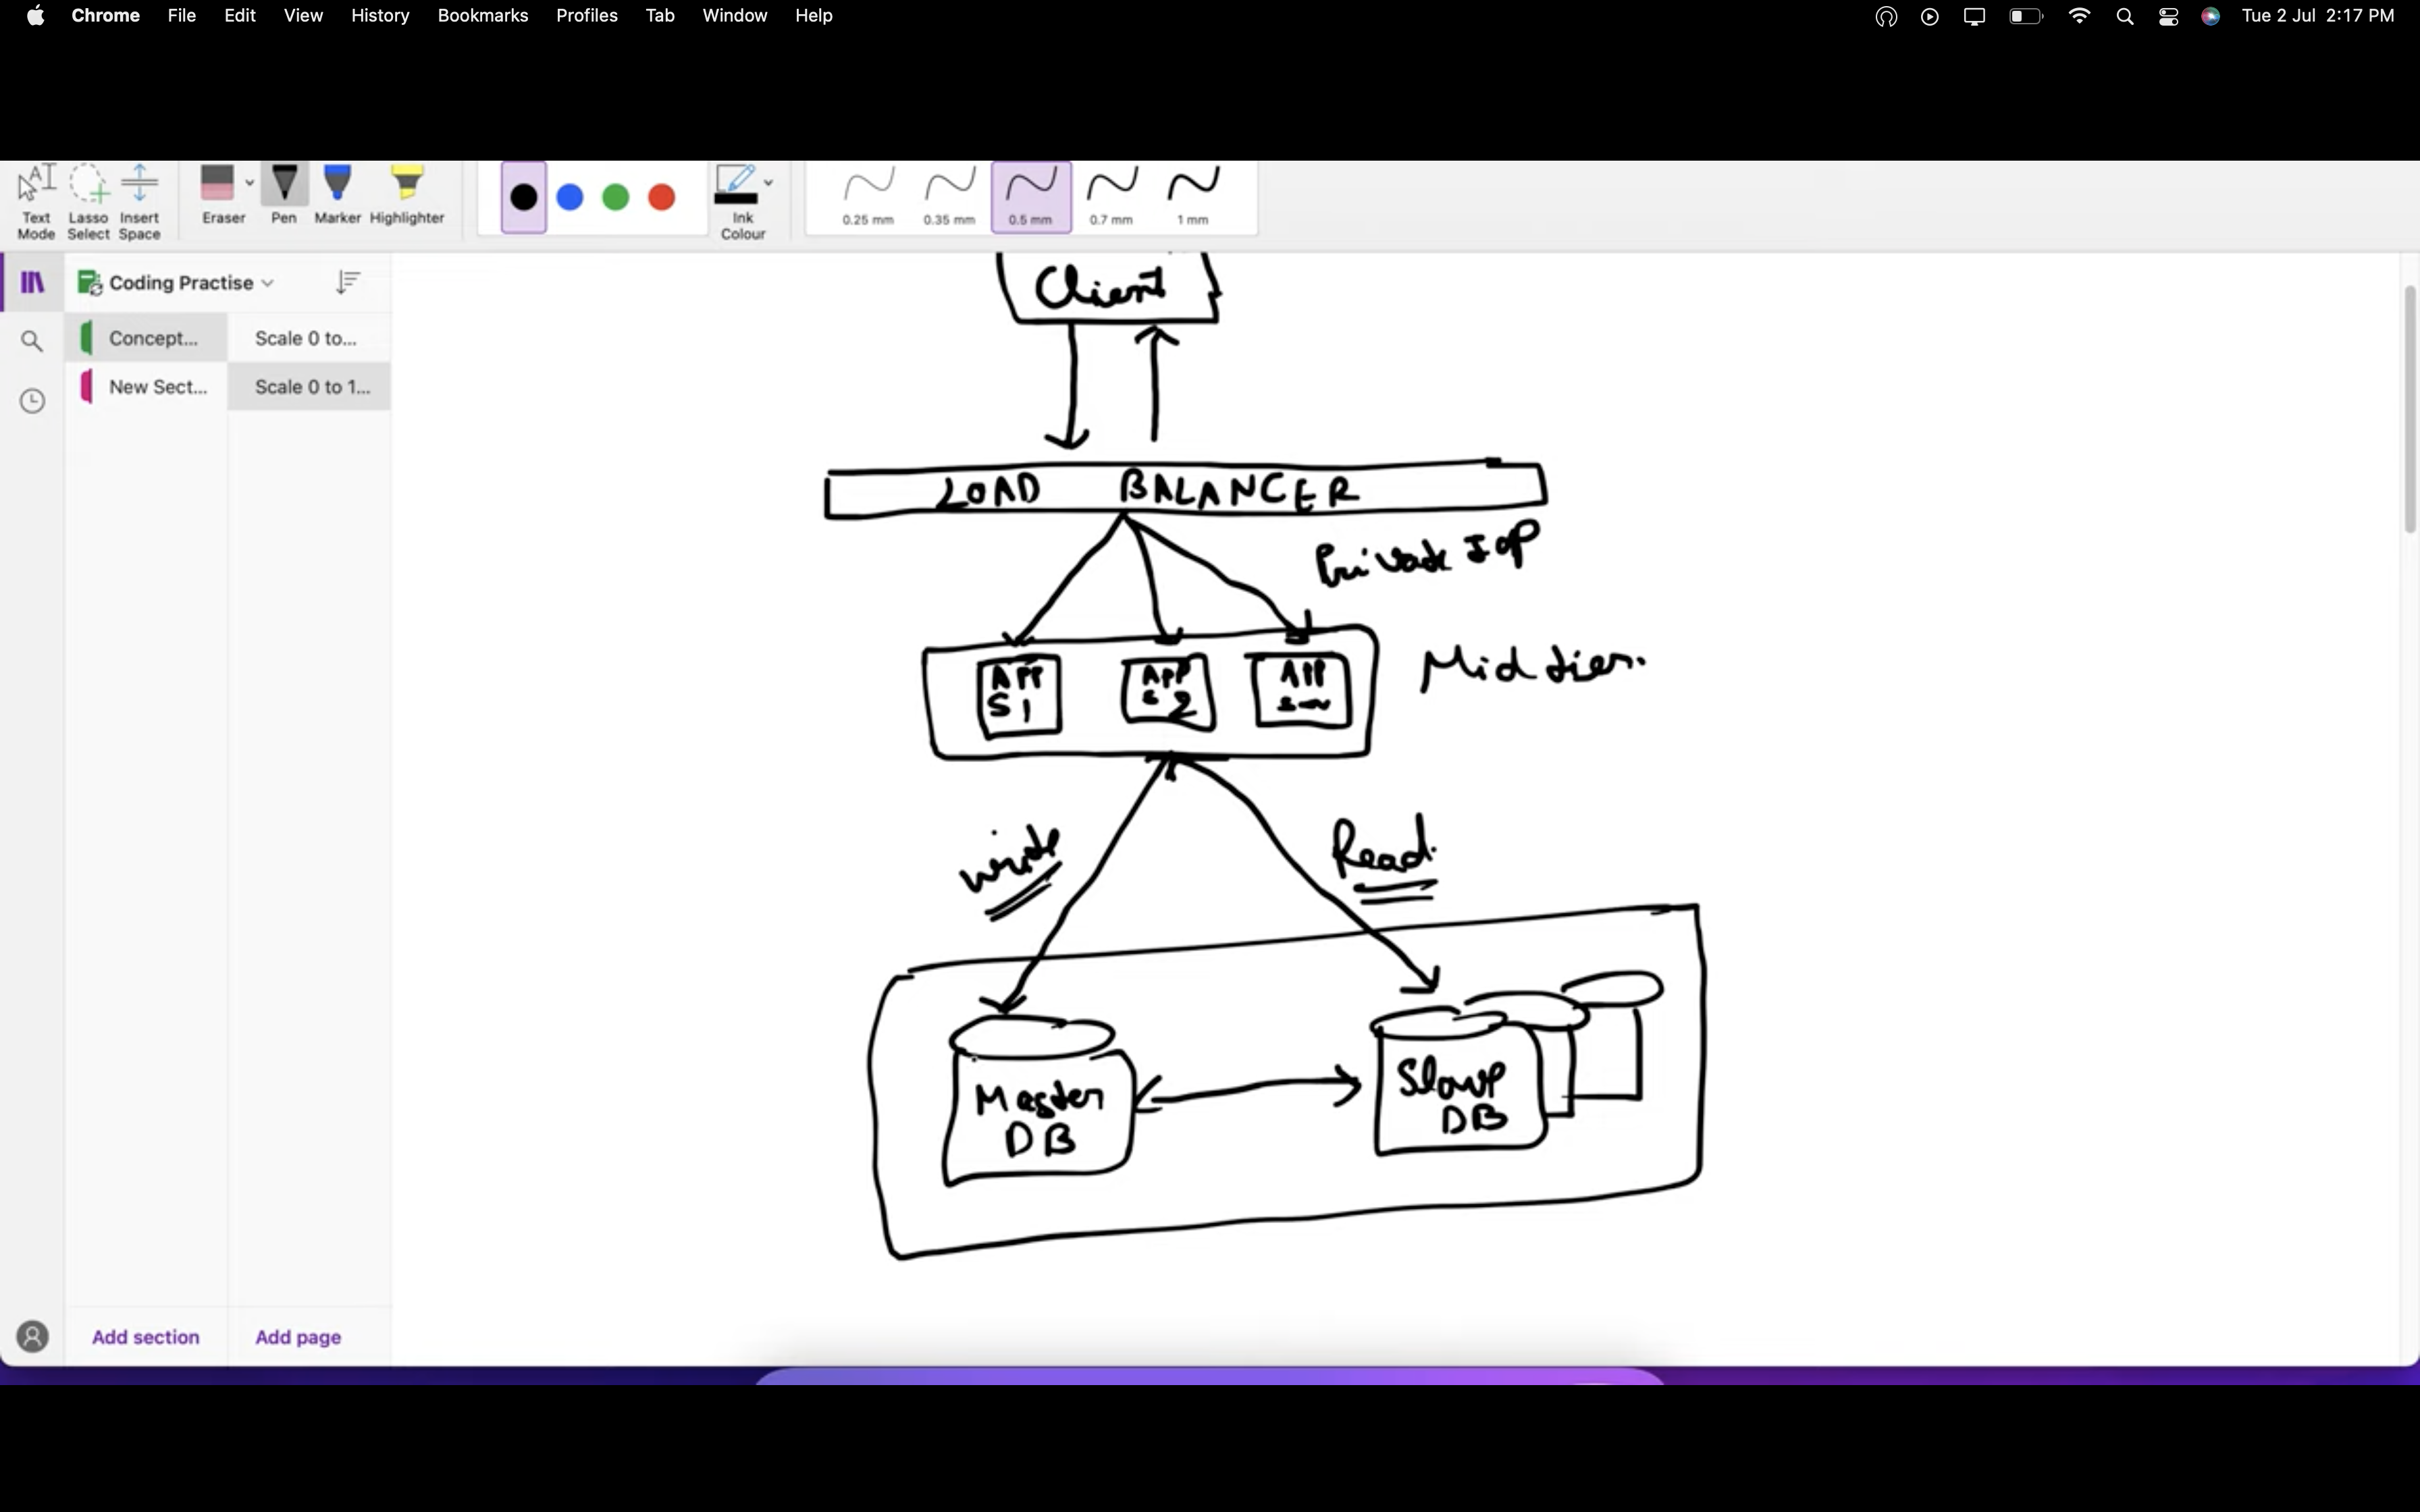 Chrome File Edit View History Bookmarks Profiles Tab Window Help Tue 2 Jul 2:17 PM
Text Mode
Lasso Select
Insert Space
Eraser
Pen
Marker
Highlighter
Ink Colour
0.25 mm
0.35 mm
0.5 mm
0.7 mm
1 mm
Coding Practise
Concept...
Scale 0 to...
New Sect...
Scale 0 to 1...
Client
LOAD BALANCER
Private
APP
S1
APP
S2
APP
Mid tier.
write
Read.
Master
DB
Slave
DB
Add section
Add page